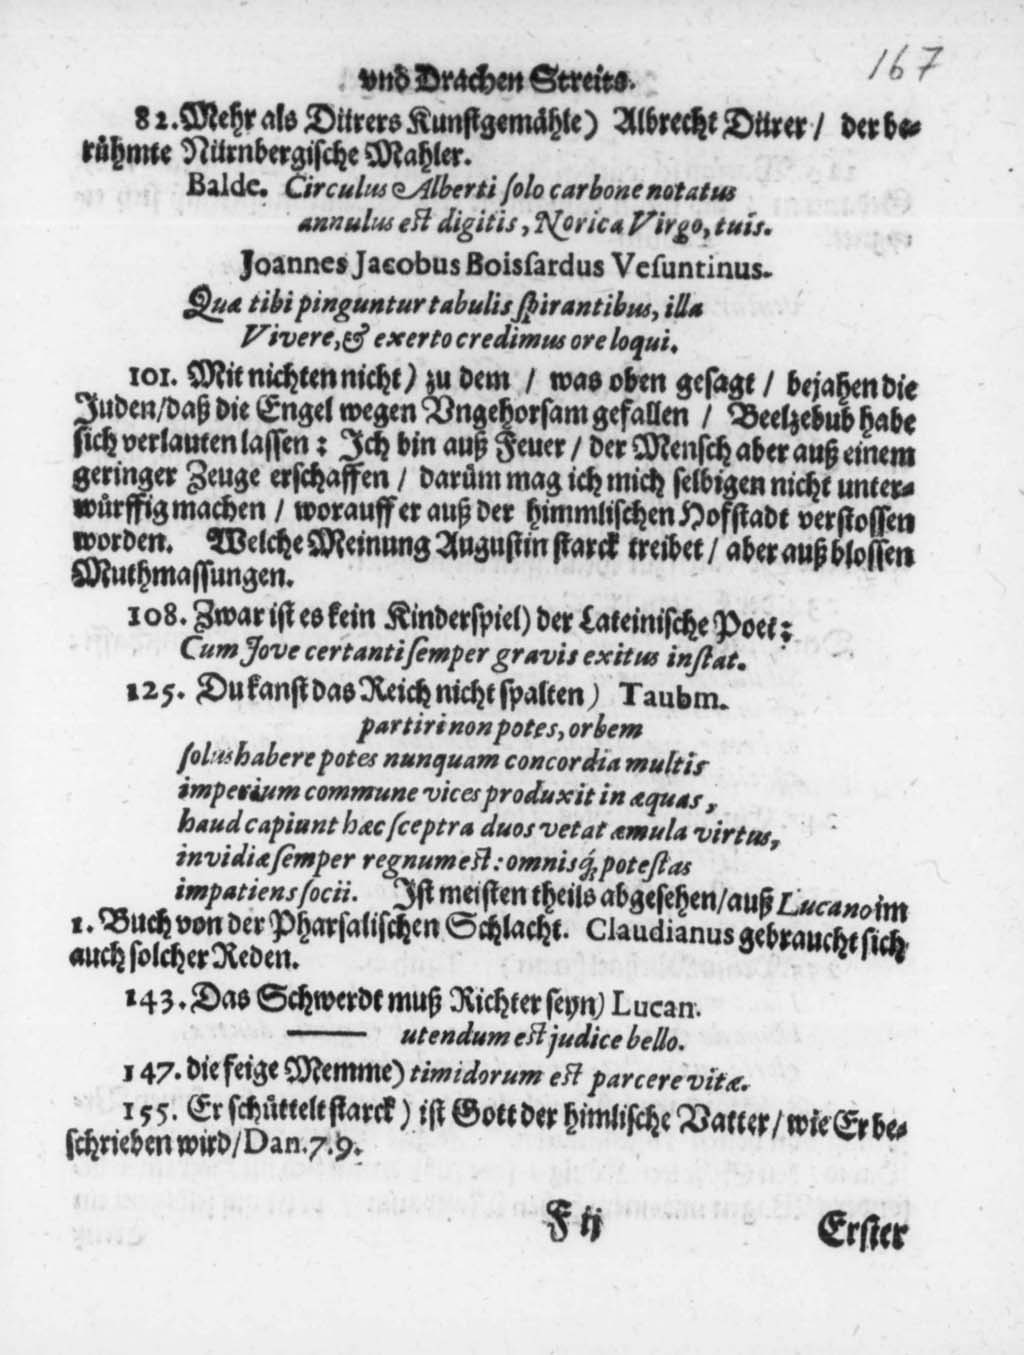 167
vnd Drachen Streits.
82. Mehr als Dürers Kunstgemähle) Albrecht Dürer / der be-
rühmte Nürnbergische Mahler.
Balde. Circulus Alberti ſolo carbone notatus
annulus est digitis, Norica Virgo, tuis.
Joannes Jacobus Boisſardus Veſuntinus.
Quæ tibi pinguntur tabulis ſpirantibus, illa
Vivere, & exerto credimus ore loqui.
101. Mit nichten nicht) zu dem / was oben gesagt / bejahen die
Juden/daß die Engel wegen Vngehorsam gefallen / Beelzebub habe
sich verlauten lassen: Ich bin auß Feuer / der Mensch aber auß einem
geringer Zeuge erschaffen / darüm mag ich mich selbigen nicht unter-
würffig machen / worauff er auß der himmlischen Hofstadt verstossen
worden. Welche Meinung Augustin starck treibet / aber auß blossen
Muthmassungen.
108. Zwar ist es kein Kinderspiel) der Lateinische Poet:
Cum Jove certanti ſemper gravis exitus inſtat.
125. Du kanst das Reich nicht spalten) Taubm.
partiri non potes, orbem
ſolus habere potes nunquam concordia multis
imperium commune vices produxit in æquas,
haud capiunt hæc ſceptra duos vetat æmula virtus,
invidiæ ſemper regnum est: omnisq́; poteſtas
impatiens ſocii. Ist meisten theils abgesehen/auß Lucano im
1. Buch von der Pharsalischen Schlacht. Claudianus gebraucht sich
auch solcher Reden.
143. Das Schwerdt muß Richter seyn) Lucan.
——— utendum est judice bello.
147. die feige Memme) timidorum est parcere vitæ.
155. Er schüttelt starck) ist Gott der himlische Vatter / wie Er be-
schrieben wird/Dan. 7. 9.
F ij
Erster